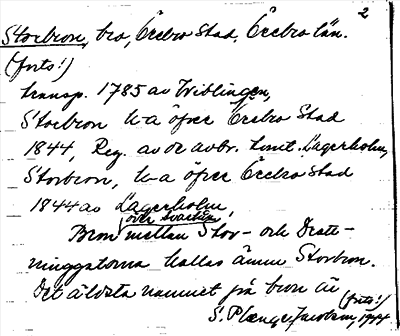 2
Storbron, bro, Örebro stad, Örebro län.
(forts!)
transp. 1785 av Wiblingen,
Storbron k-a öfver Örebro Stad
1844, Reg. av avbr. Lagerholm,
Storbron, k-a öfver Örebro stad
1844 av Lagerholm,
över Svartån
Bron mellan Stor- och Drott-
ninggatorna kallas ännu Storbron.
Det äldsta namnet på bron är
(forts!)
S. Plænge Jacobson 1944